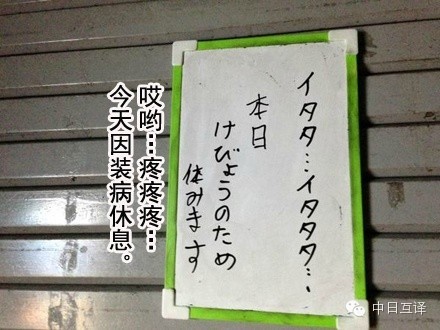 イタタ…イタタタ…
本日
けびょうのため
休みます
哎哟…疼疼疼…
今天因装病休息。
中日互译